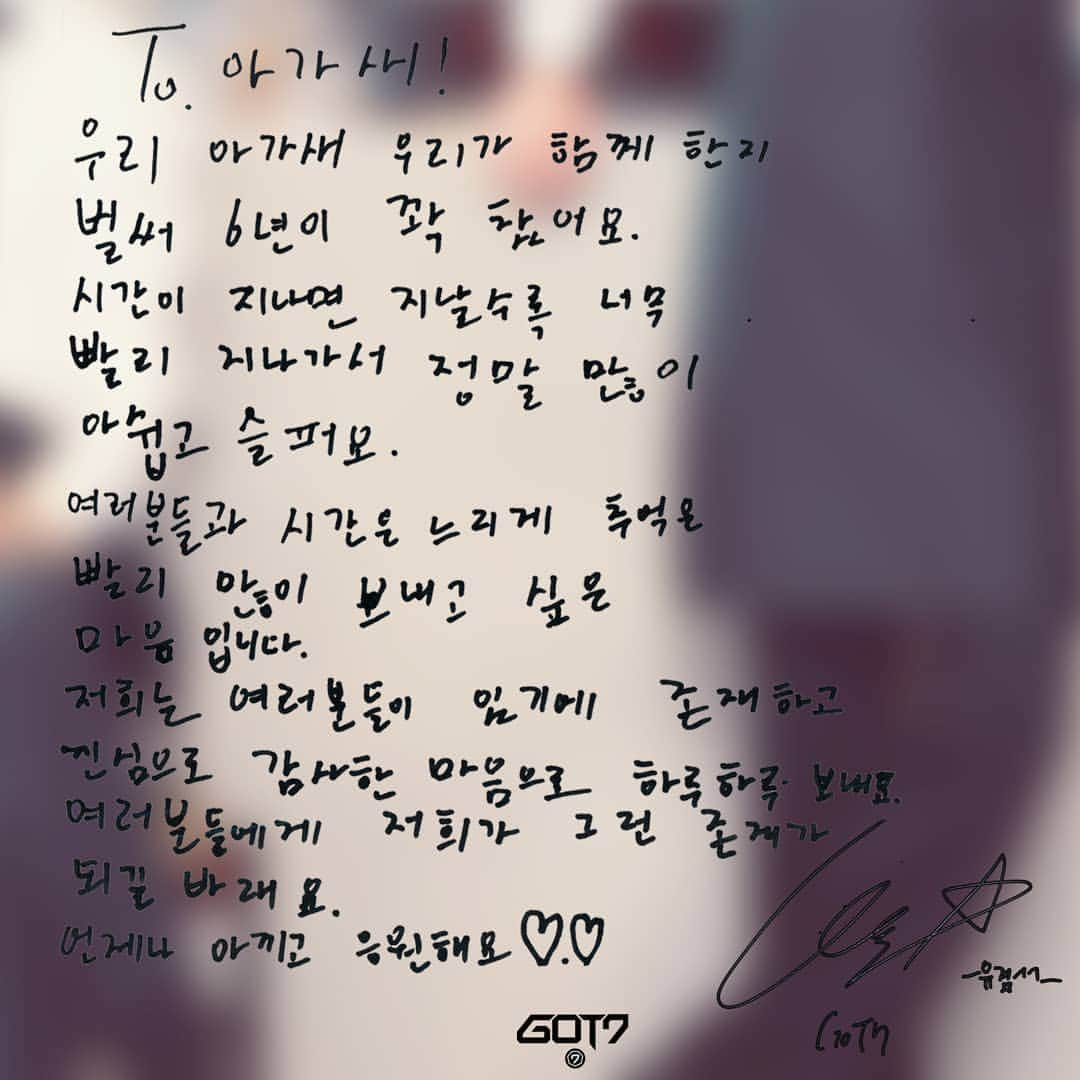 To. 아가새!
우리 아가새 우리가 함께 한지
벌써 6년이 꽉 찼어요.
시간이 지나면 지날수록 너무
빨리 지나가서 정말 많이
아쉽고 슬퍼요.
여러분들과 시간은 느리게 추억은
빨리 많이 보내고 싶은
마음 입니다.
저희는 여러분들이 있기에 존재하고
진심으로 감사한 마음으로 하루하루 보내요.
여러분들에게 저희가 그런 존재가
되길 바래요.
언제나 아끼고 응원해요♡.♡
GOT7
GOT7
7